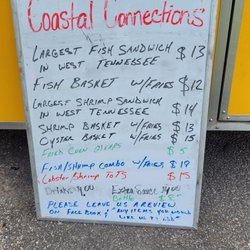 Coastal Connections
LARGEST FISH SANDWICH $13
IN WEST TENNESSEE
FISH BASKET W/FRIES $12
LARGEST SHRIMP SANDWICH
IN WEST TENNESSEE $14
SHRIMP BASKET W/FRIES $13
OYSTER BASKET W/FRIES $15
FRIED CORN $5
FISH/SHRIMP COMBO W/FRIES $18
LOBSTER SHRIMP TOTS $15
DRINKS $1.00 EXTRA SAUCE
PLEASE LEAVE US A REVIEW
ON FACEBOOK & "ANY ITEMS YOU WOULD
LIKE US TO ADD"